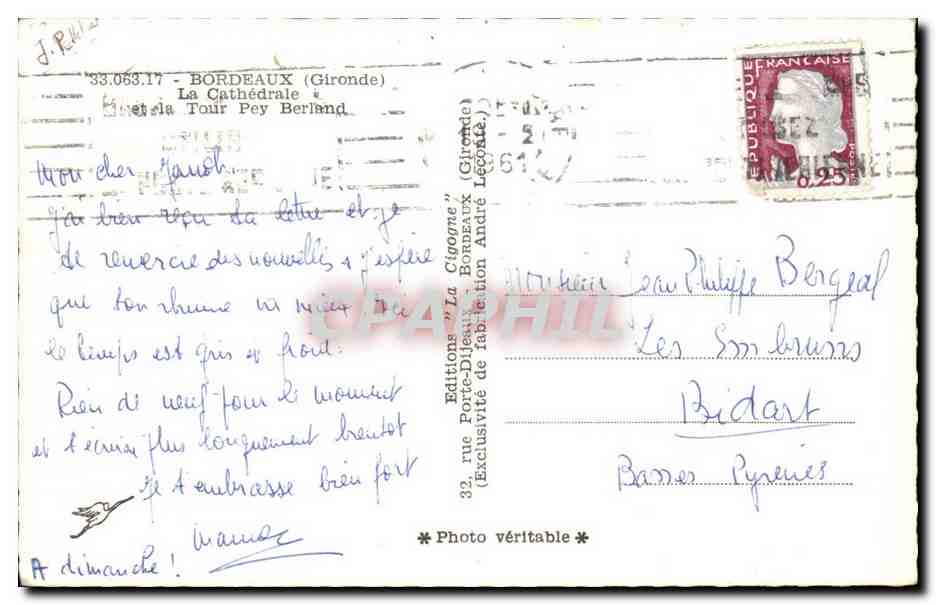 J. P
33.063.17 - BORDEAUX (Gironde)
La Cathédrale
et la Tour Pey Berland
Mon cher
j'ai bien reçu ta lettre et je
te remercie des nouvelles, j'espère
que ton rhume va mieux
le temps est gris et froid.
Rien de neuf pour le moment
et t'écrirai plus longuement bientot
Je t'embrasse bien fort
Maman
A dimanche !
Editions "La Cigogne"
32, rue Porte-Dijeaux - BORDEAUX (Gironde)
(Exclusivité de fabrication André Leconte.)
* Photo véritable *
REPUBLIQUE FRANÇAISE
0,25
POSTES
1961
Monsieur Jean Philippe Bergeal
Les Embruns
Bidart
Basses Pyrénées
CPAPHIL